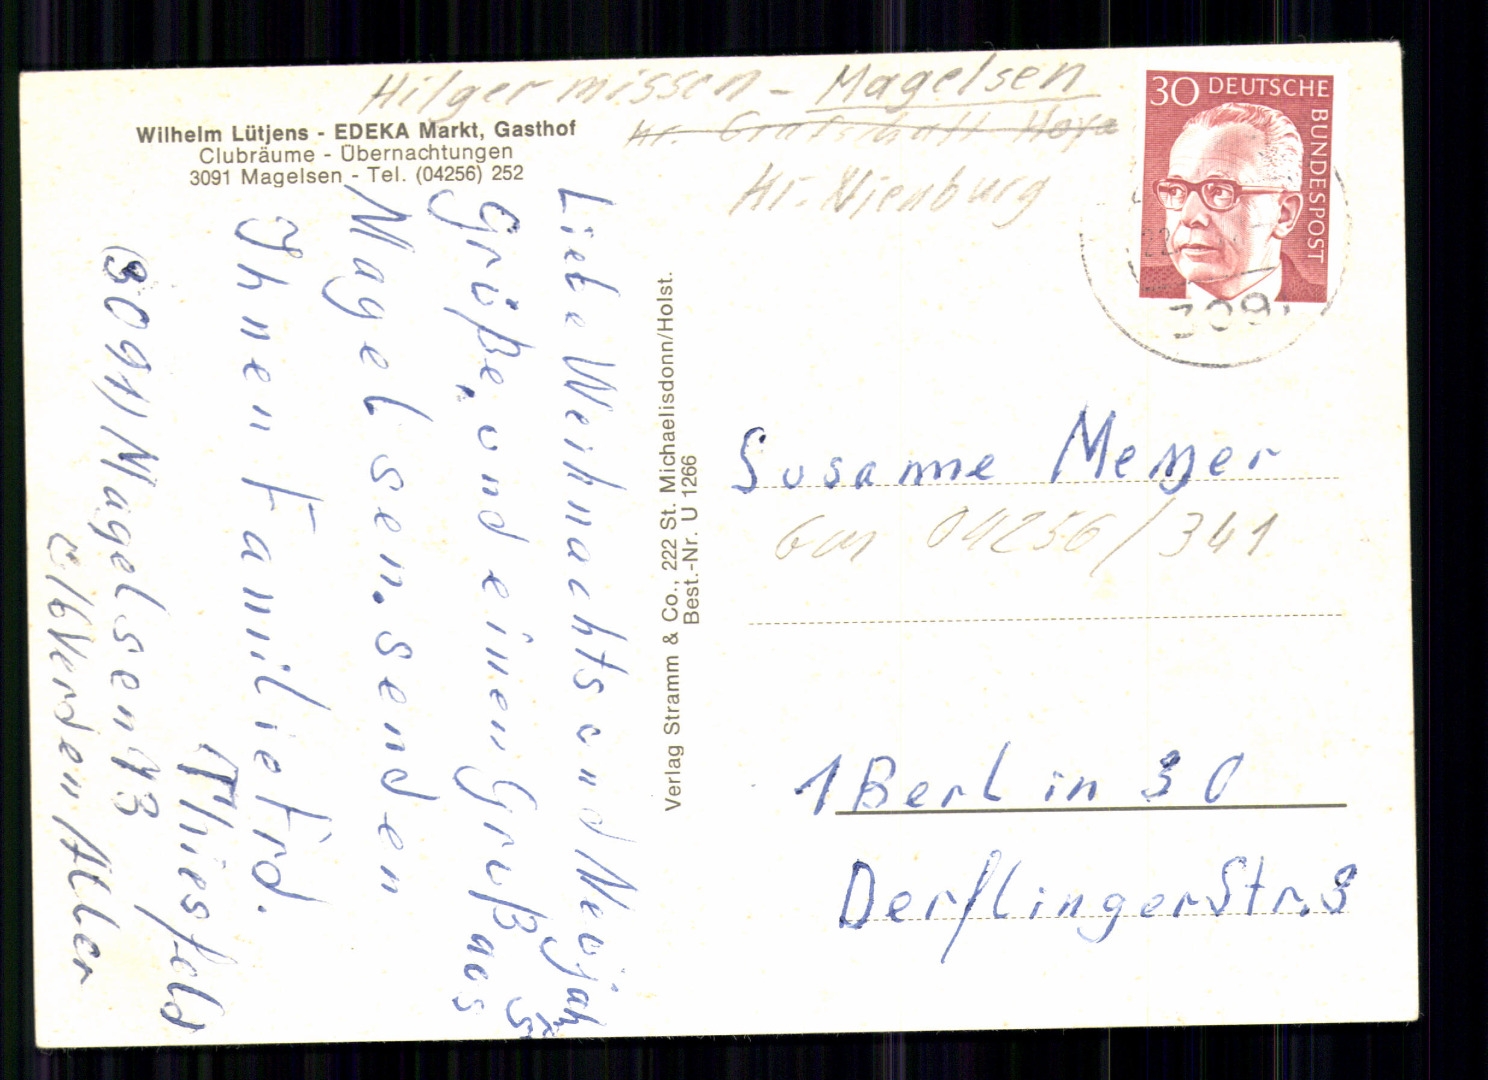 Hilgermissen - Magelsen
Kr. Grafschaft Hoya
Kr. Nienburg
Wilhelm Lütjens - EDEKA Markt, Gasthof
Clubräume - Übernachtungen
3091 Magelsen - Tel. (04256) 252
30 DEUTSCHE BUNDESPOST
22
309
Liebe Weihnachts und Neujah
Grüße, und einen Gruß aus
Magelsen. senden
Ihnen Familie Frd.
Thiesfeld
(3091) Magelsen 43
b/Verden Aller
Verlag Stramm & Co., 222 St. Michaelisdonn/Holst.
Best.-Nr. U 1266
Susanne Meyer
04256/341
1 Berlin 30
Derflinger Str. 3